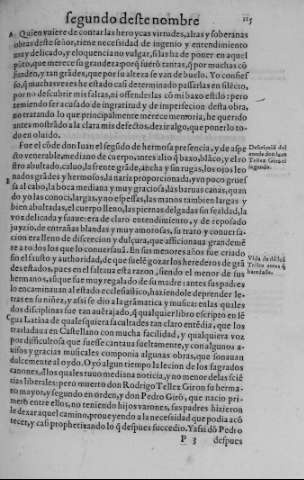 segundo deste nombre
115
A Quien vuiere de contar las heroycas virtudes, altas y soberanas
obras deste señor, tiene necesidad de ingenio y entendimiento
muy delicado, y eloquencia no vulgar, si la ha de poner en aquel
pũto, que merece su grandeza: porq̃ fuerõ tantas, q̃ por muchas cõ
funden, y tan grãdes, que por su alteza se van de buelo. Yo confies
so, q̃ muchas vezes he estado casi determinado passarlas en silẽcio,
por no descubrir mis faltas, ni offenderlas cõ mi baxo estilo: pero
temiendo ser acusado de ingratitud y de imperfecion desta obra,
no tratando lo que principalmente merece memoria, he querido
antes mostrãdo a la clara mis defectos, dezir algo, que ponerlo to-
do en oluido.
Fue el cõde don Iuan el segũdo de hermosa presencia, y de aspe
cto venerable, mediano de cuerpo, antes alto q̃ baxo, blãco, y el ro
stro abultado, caluo, la frente grãde, ãcha y sin rugas, los ojos leo
nados grãdes y hermosos, la nariz proporcionada, y vn poco grues
sa al cabo, la boca mediana y muy graciosa, las baruas canas, quan
do yo las conoci, largas, y no espessas, las manos tambien largas y
bien abultadas, el cuerpo lleno, las piernas delgadas sin fealdad, la
voz delicada y suaue: era de claro entendimiento, y de reposado
juyzio, de entrañas blandas y muy amorosas, su trato y conuersa-
cion era lleno de discrecion y dulçura, que afficionaua grandemẽ
te a todos los que lo conuersauã. En sus menores años fue criado
sin el fausto y authoridad, de que suelẽ gozar los herederos de grã
des estados, pues en el faltaua esta razon, siendo el menor de sus
hermanos, si que fue muy regalado de su madre: antes sus padres
lo encaminauan al estado ecclesiastico, haziendole deprender le-
tras en su niñez, y assi se dio a la grãmatica y musica: en las quales
dos disciplinas fue tan auẽtajado, q̃ qualquier libro escripto en lẽ
gua Latina de qualesquiera facultades tan claro entẽdia, que los
trasladaua en Castellano con mucha facilidad, y qualquiera voz
por difficultosa que fuesse cantaua sueltamente, y con algunos a-
uisos y gracias musicales componia algunas obras, que sonauan
dulcemente al oydo. Oyó algun tiempo la lecion de los sagrados
canones, d̃ los quales tuuo mediana noticia, y no menor de las sciẽ
tias liberales: pero muerto don Rodrigo Tellez Giron su herma-
no mayor, y segundo en orden, y don Pedro Girõ, que nacio pri-
mero entre ellos, no teniendo hijos varones, sus padres hizieron
le dexar aquel camino, proueyendo a la necessidad que podia acõ
tecer, y casi prophetizando lo q̃ despues succedio. Ya assi dõ Pedro
P 3 despues
Descriciõ del
conde don Iuan
Tellez Girõ el
segundo.
B
Vida de dõ Iuã
Tellez antes q̃
heredasse.
C